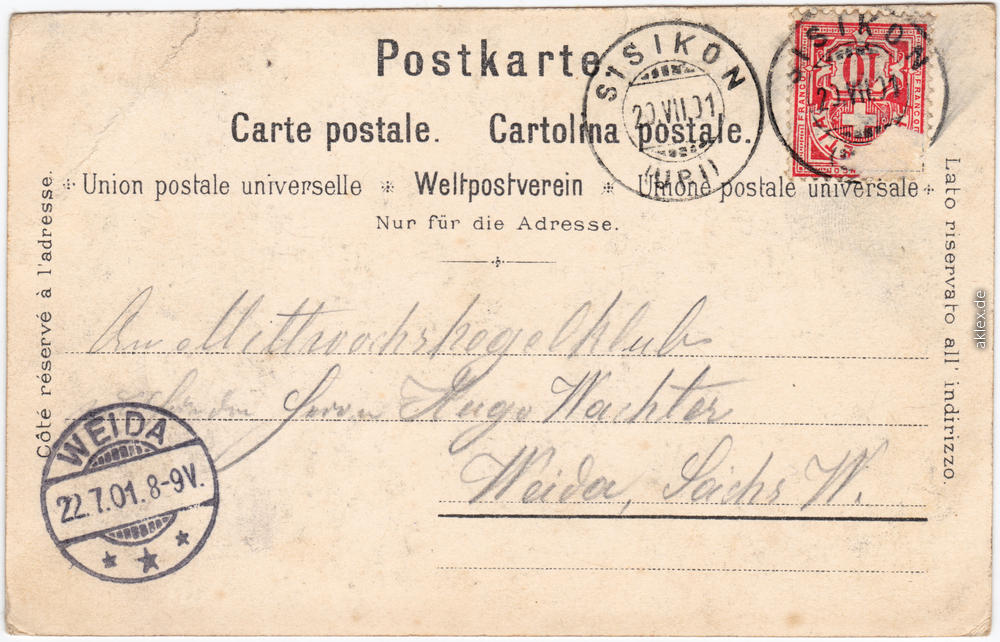 Postkarte.
Carte postale. Cartolina postale.
Union postale universelle * Weltpostverein * Unione postale universale
Nur für die Adresse.
Côté réservé à l'adresse.
Lato riservato all' indirizzo.
SISIKON
20.VII.01
(URI)
SISIKON
20.VII.01
10
FRANCO FRANCO
An Mittwochskegelklub
Herrn Hugo Wachter
Weida, Sachs W.
WEIDA
22.7.01. 8-9V.
aklex.de